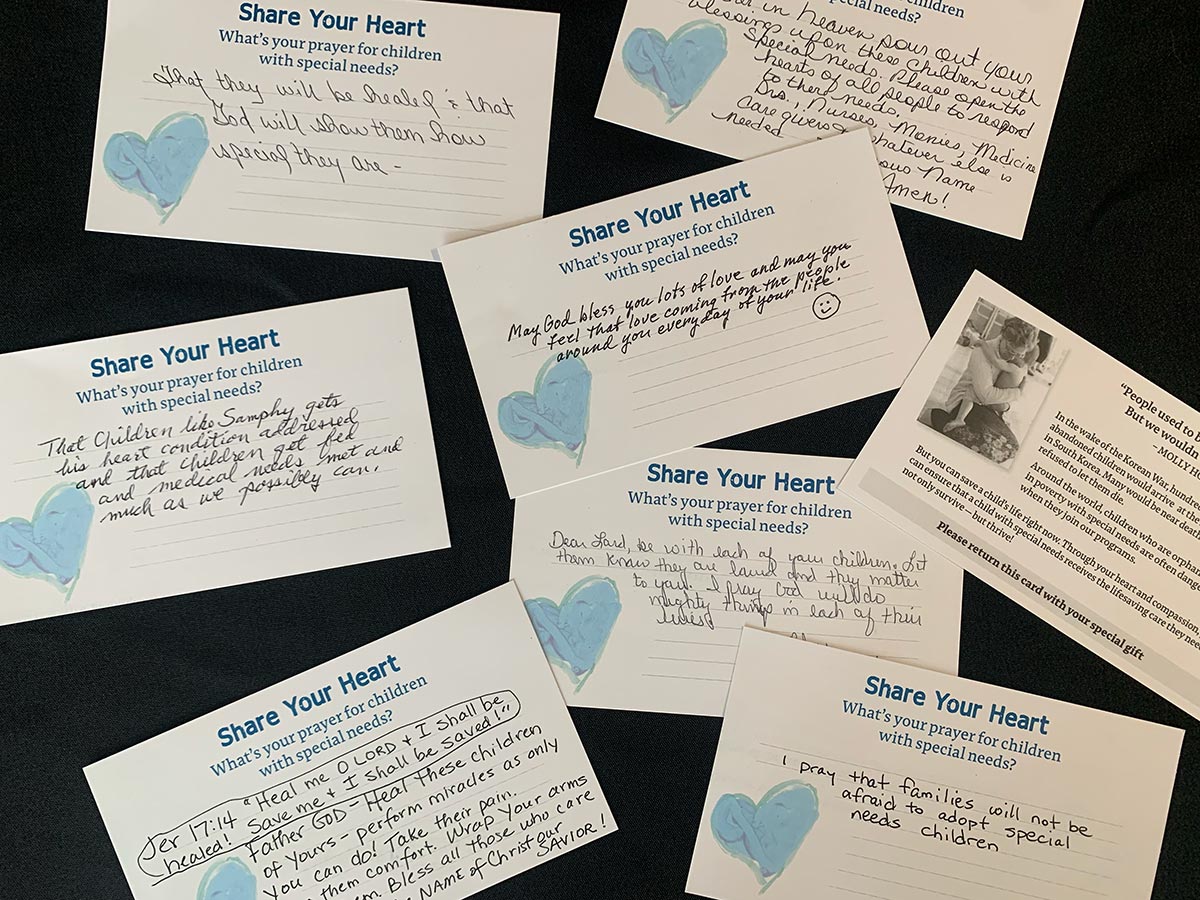 Share Your Heart
What's your prayer for children
with special needs?
That they will be healed & that
God will show them how
special they are -
special needs?
in heaven pour out your
blessings upon these children with
special needs. Please open the
hearts of all people to respond
to there needs.
Drs., Nurses, Monies, Medicine
care givers whatever else is
needed
Name
Amen!
Share Your Heart
What's your prayer for children
with special needs?
May God bless you lots of love and may you
feel that love coming from the people
around you everyday of your life.
Share Your Heart
What's your prayer for children
with special needs?
That Children like Samphy gets
his heart condition addressed
and that children get fed
and medical needs met and
much as we possibly can.
"People used to
But we would
-MOLLY
In the wake of the Korean War,
abandoned children would arrive at the
in South Korea. Many would be near death
refused to let them die.
Around the world, children who are
in poverty with special needs are often
when they join our programs.
But you can save a child's life right now. Through your heart and compassion,
can ensure that a child with special needs receives the lifesaving care they need
not only survive – but thrive!
Please return this card with your special gift
Share Your Heart
What's your prayer for children
with special needs?
Dear Lord, be with each of your children. Let
them know they are loved and they matter
to you. I pray God will do
mighty things in each of their
lives
Share Your Heart
What's your prayer for children
with special needs?
Jer 17:14 "Heal me O LORD & I shall be
healed! Save me & I shall be saved!"
Father GOD - Heal These Children
of Yours - perform miracles as only
You can do! Take their pain.
them comfort. Wrap Your arms
Bless all those who care
NAME of Christ our
SAVIOR!
Share Your Heart
What's your prayer for children
with special needs?
I pray that families will not be
afraid to adopt special
needs children